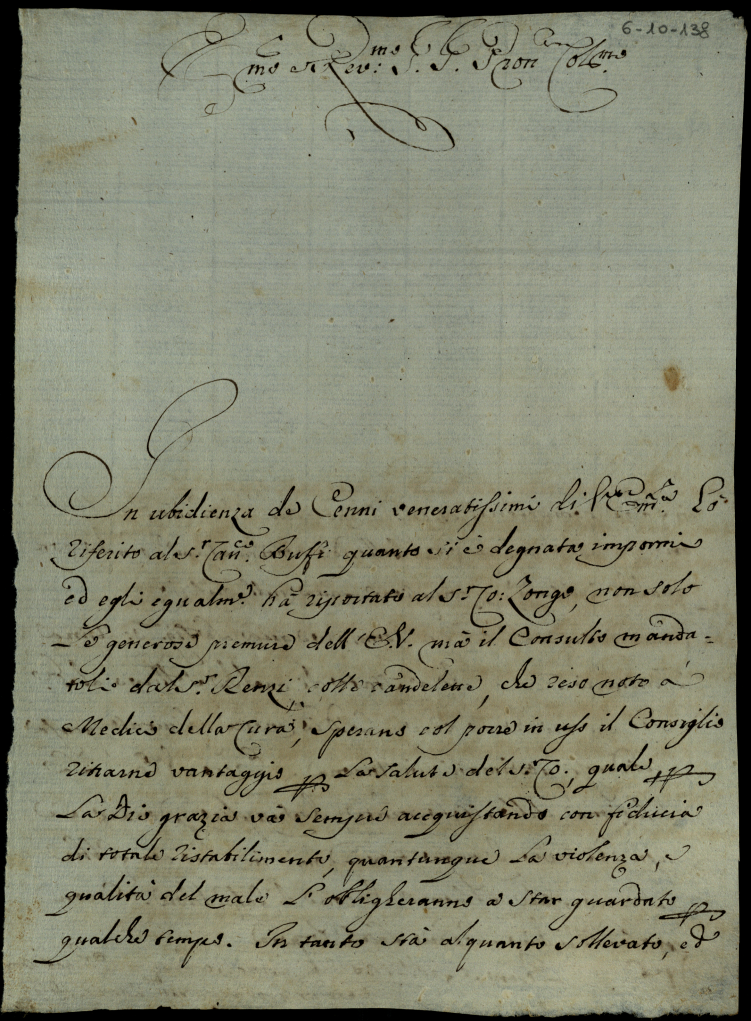 6-10-138
E.mo e Rev.mo S. S. Pron Col.mo
In ubidienza de Cenni veneratissimi di V.ra Em.za hò
riferito al s.r Cau.re Bussi quanto si è degnata impormi
ed egli egualm.e ha riportato al s.r Co: Zongo, non solo
le generose premure dell'E.V. mà il Consulto manda-
toli dal s.r Renzi colle candelette, che reso noto a
Medici della Cura, sperano col porre in uso il Consiglio
ritrarne vantaggio p la salute del s.r Co., quale p
La Dio grazia và sempre acquistando con fiducia
di totale ristabilimento, quantunque la violenza, e
qualità del male l'obligheranno a star guardato p
qualche tempo. In tanto stà alquanto sollevato, ed